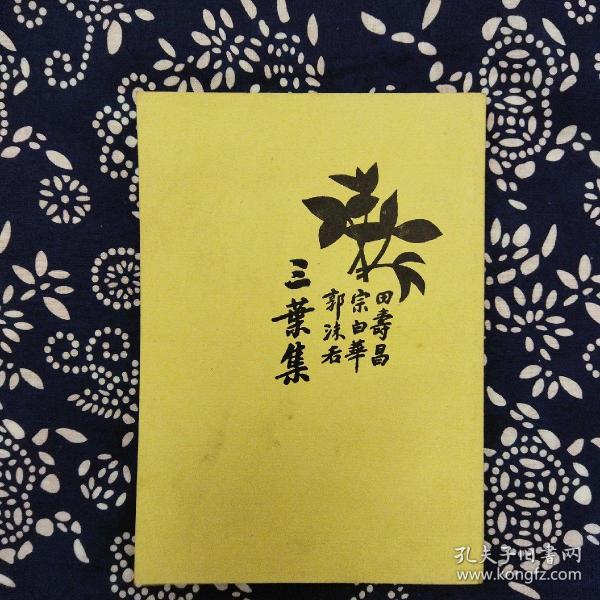 田壽昌
宗白華
郭沫若
三葉集
孔夫子旧書网
www.kongfz.com